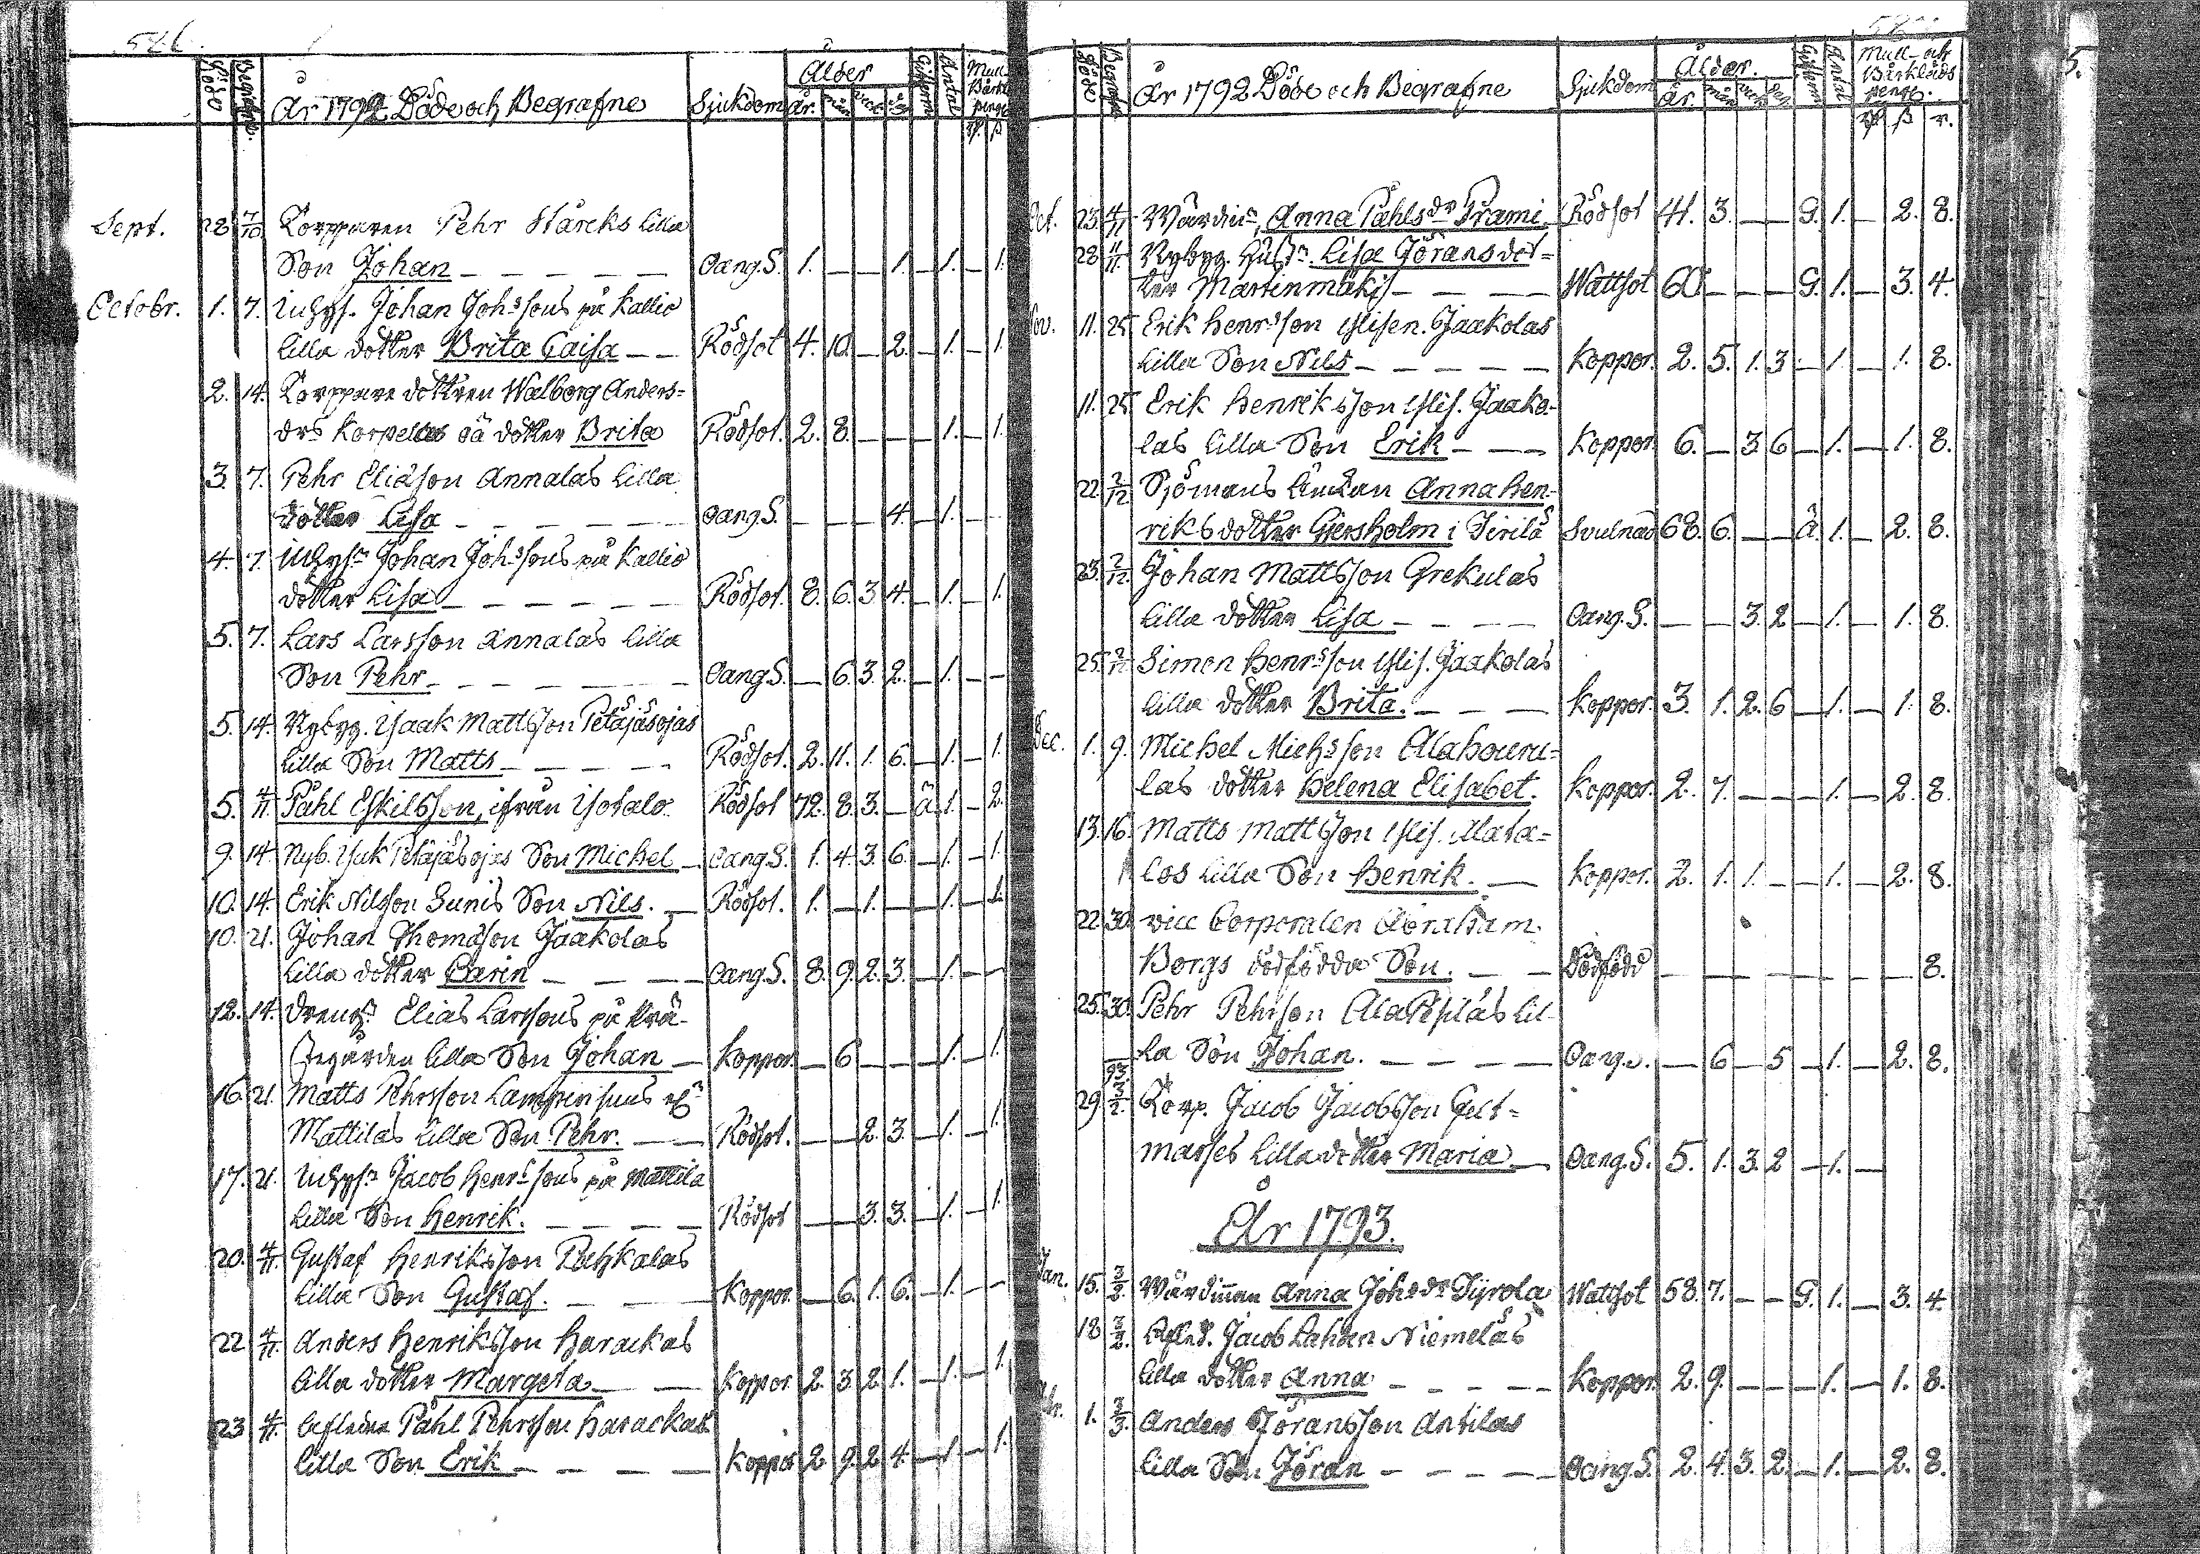 586.
Födde Begrafne År 1792 Döde och Begrafne Sjukdom Ålder år mån veck dag Gifterm Antal Mull Bårkl penge
Sept. 28 7/10 Torpparen Pehr Starcks lilla
Son Johan Oang.S. 1. — — 1. — 1. — 1.
Octobr. 1. 7. Inhys. Johan Joh:sons på Kallio
lilla dotter Brita Caisa Rödsot 4. 10. — 2. — 1. — 1.
2. 14. Torppare dottren Walborg Anders=
drs Korpelas oä dotter Brita Rödsot. 2. 8. — — — 1. — 1.
3. 7. Pehr Eliasson Annalas lilla
dotter Lisa Oang.S. — — — 4. — 1. —
4. 7. Inhys:n Johan Joh:sons på Kallio
dotter Lisa Rödsot. 8. 6. 3. 4. — 1. — 1.
5. 7. Lars Larsson Annalas lilla
Son Pehr Oang.S. — 6. 3. 2. — 1. — —
5. 14. Nybyg. Isaak Mattsson Petäjäsojas
lilla Son Matts Rödsot. 2. 11. 1. 6. — 1. — 1.
5. 4/11. Påhl Eskilsson, ifrån Isotalo Rödsot 72. 8. 3. — ä 1. — 2.
9. 14. Nyb. Isak Petäjäsojas Son Michel Oang.S. 1. 4. 3. 6. — 1. — 1.
10. 14. Erik Nilsson Sunis Son Nils. Rödsot. 1. — 1. — — 1. — 1.
10. 21. Johan Thomasson Jaakolas
lilla dotter Carin Oang.S. 8. 9. 2. 3. — 1. — —
12. 14. Dreng. Elias Larssons på Prä-
stegården lilla Son Johan Koppor. — 6 — — — 1. — 1.
16. 21. Matts Pehrsson
Mattilas lilla Son Pehr. Rödsot. — — 2. 3. — 1. — 1.
17. 21. Inhys:n Jacob Henr:sons på Mattila
lilla Son Henrik. Rödsot — — 3. 3. — 1. — 1.
20. 4/11. Gustaf Henriksson Pahkalas
lilla Son Gustaf. Koppor. — 6. 1. 6. — 1. — —
22 4/11. Anders Henriksson Harackas
lilla dotter Margeta Koppor 2. 3. 2. 1. — 1. — 1.
23 4/11. Afledne Påhl Pehrsson Harackas
lilla Son Erik Koppor 2. 9. 2. 4. — 1. — 1.
Döde Begrafne År 1792 Döde och Begrafne Sjukdom Ålder. år. mån veck dag Gifterm Antal Mull- och Bårkläds peng.
Oct. 23. 4/11 Wärdin:n Anna Påhlsdr Prami Rödsot 41. 3. — — G. 1. — 2. 8.
28 11/11 Nybyg. Hust:n Lisa Jöransdot=
ter Martinmäki Wattsot 60 — — — G. 1. — 3. 4.
Nov. 11. 25. Erik Henr:sson Ylisen. Jaakolas
lilla Son Nils Koppor. 2. 5. 1. 3 — 1. — 1. 8.
11. 25. Erik Henriksson Ylis. Jaako-
las lilla Son Erik Koppor. 6. — 3 6 — 1. — 1. 8.
22. 2/12 Sjömans Enckan Anna Hen-
riksdotter Giersholm i Sirilä Svulnad 68. 6. — — ä. 1. — 2. 8.
23. 2/12. Johan Mattsson Grekulas
lilla dotter Lisa Oang.S. — — 3. 2 — 1. — 1. 8.
25. 2/12 Simon Henr:son Ylis. Jaakolas
lilla dotter Brita. Koppor. 3. 1. 2. 6 — 1. — 1. 8.
Dec. 1. 9. Michel Mich:sson Alahouru=
las dotter Helena Elisabet. Koppor. 2. 7. — — — 1. — 2. 8.
13. 16. Matts Mattsson Ylis. Alata=
los lilla Son Henrik. Koppor. 2. 1. 1. — — 1. — 2. 8.
22. 30. Vice Corporalen Abraham
Borgs dödfödda Son. Dödfödd — — — — — — — 8.
25. 30. Pehr Pehrsson Alapesiläs lil-
la Son Johan. Oang.S. — 6 — 5 — 1. — 2. 8.
93.
29 3/2. Torp. Jacob Jacobsson Gult=
marses lilla dotter Maria Oang.S. 5. 1. 3. 2 — 1. —
År 1793.
Jan. 15. 3/2. Wärdinnan Anna Johsdr Pyrola Wattsot 58. 7. — — G. 1. — 3. 4.
18 3/2. Afled. Jacob Lahden Niemeläs
lilla dotter Anna Koppor. 2. 9. — — — 1. — 1. 8.
Febr. 1. 3/3. Anders Jöransson Antilas
lilla Son Jöran Oang.S. 2. 4. 3. 2. — 1. — 2. 8.